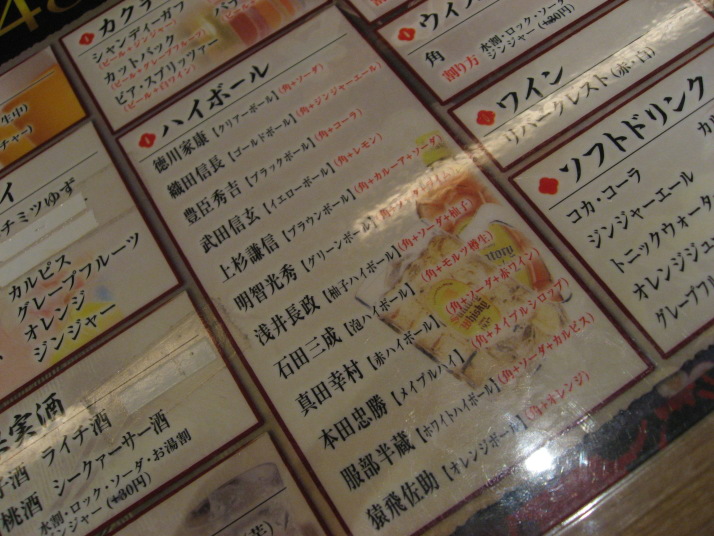 カクテ
シャンディーガフ
(ビール+ジンジャー)
カットバック
(ビール+グレープフルーツ)
ビア・スプリッツァー
(ビール+白ワイン)
ハイボール
徳川家康【クリアーボール】(角+ソーダ)
織田信長【ゴールドボール】(角+ジンジャーエール)
豊臣秀吉【ブラックボール】(角+コーラ)
武田信玄【イエローボール】(角+レモン)
上杉謙信【ブラウンボール】(角+カルーア+ソーダ)
明智光秀【グリーンボール】
浅井長政【柚子ハイボール】(角+ソーダ+柚子)
石田三成【泡ハイボール】(角+モルツ樽生)
真田幸村【赤ハイボール】(角+ソーダ+赤ワイン)
本田忠勝【メイプルハイ】(角+メイプルシロップ)
服部半蔵【ホワイトハイボール】(角+ソーダ+カルピス)
猿飛佐助【オレンジボール】(角+オレンジ)
ウイス
角
水割・ロック・ソーダ
ジンジャー(+30円)
割り方
ワイン
リバークレスト(赤・白)
ソフトドリンク
コカ・コーラ
ジンジャーエール
トニックウォータ
オレンジジュ
グレープフル
カル
イ
チミツゆず
カルピス
グレープフルーツ
オレンジ
ジンジャー
実酒
ライチ酒
シークァーサー酒
桃酒
水割・ロック・ソーダ・お湯割
ジンジャー(+30円)